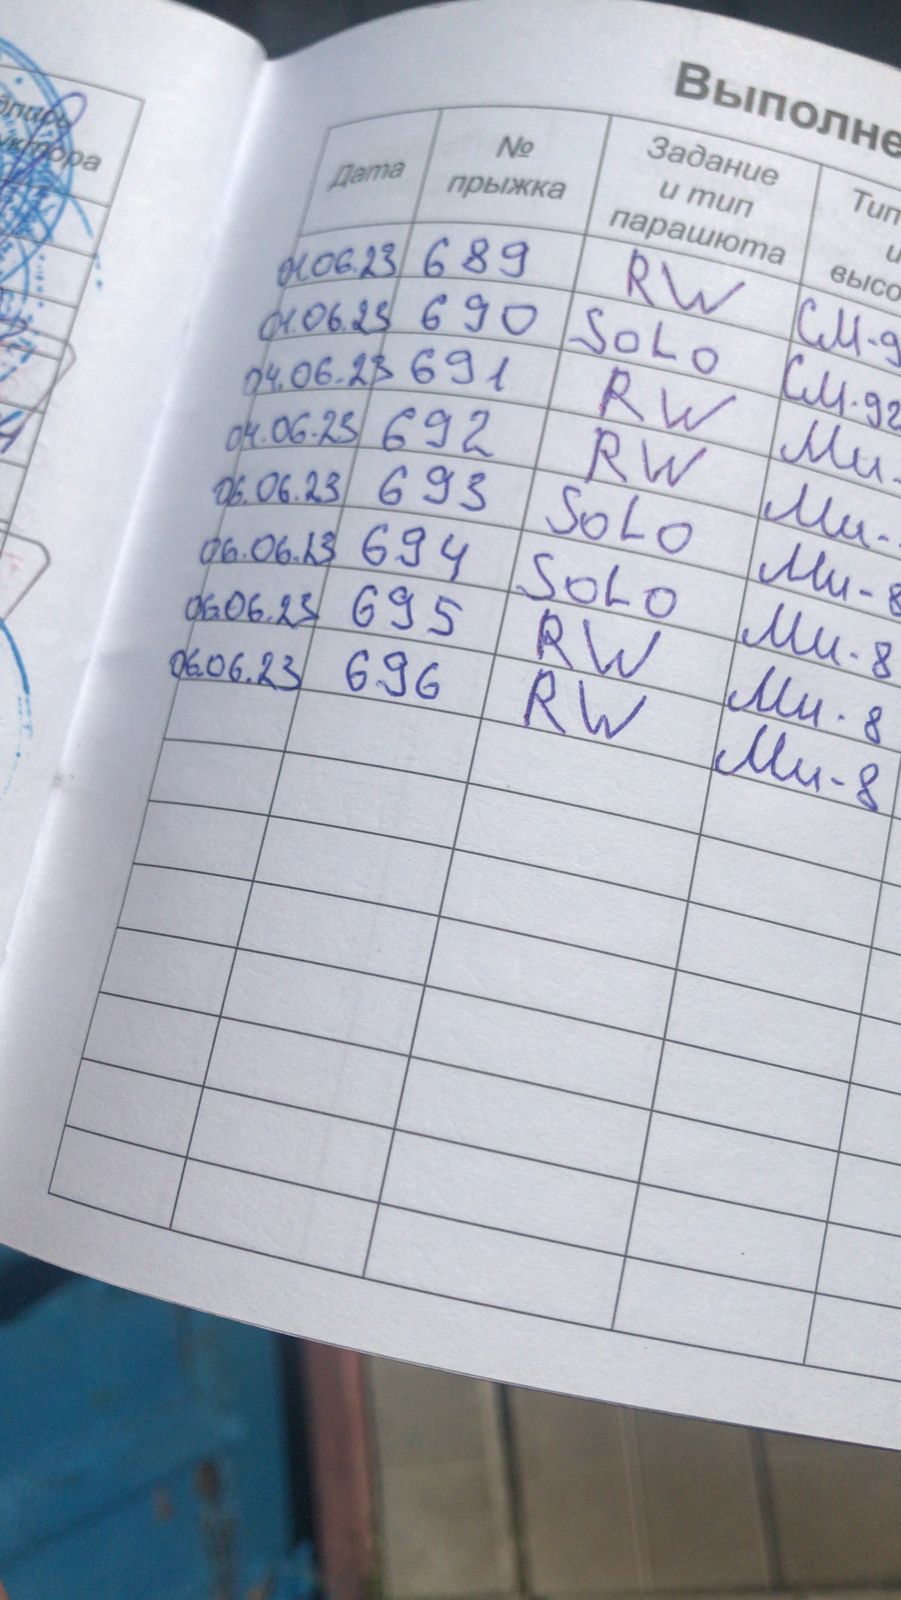 Выполне
Дата № прыжка Задание и тип парашюта Тип и высо
01.06.23 689 RW СМ-9
01.06.23 690 SOLO СМ-92
04.06.23 691 RW Ми-
04.06.23 692 RW Ми-
06.06.23 693 SOLO Ми-8
06.06.23 694 SOLO Ми-8
06.06.23 695 RW Ми-8
06.06.23 696 RW Ми-8